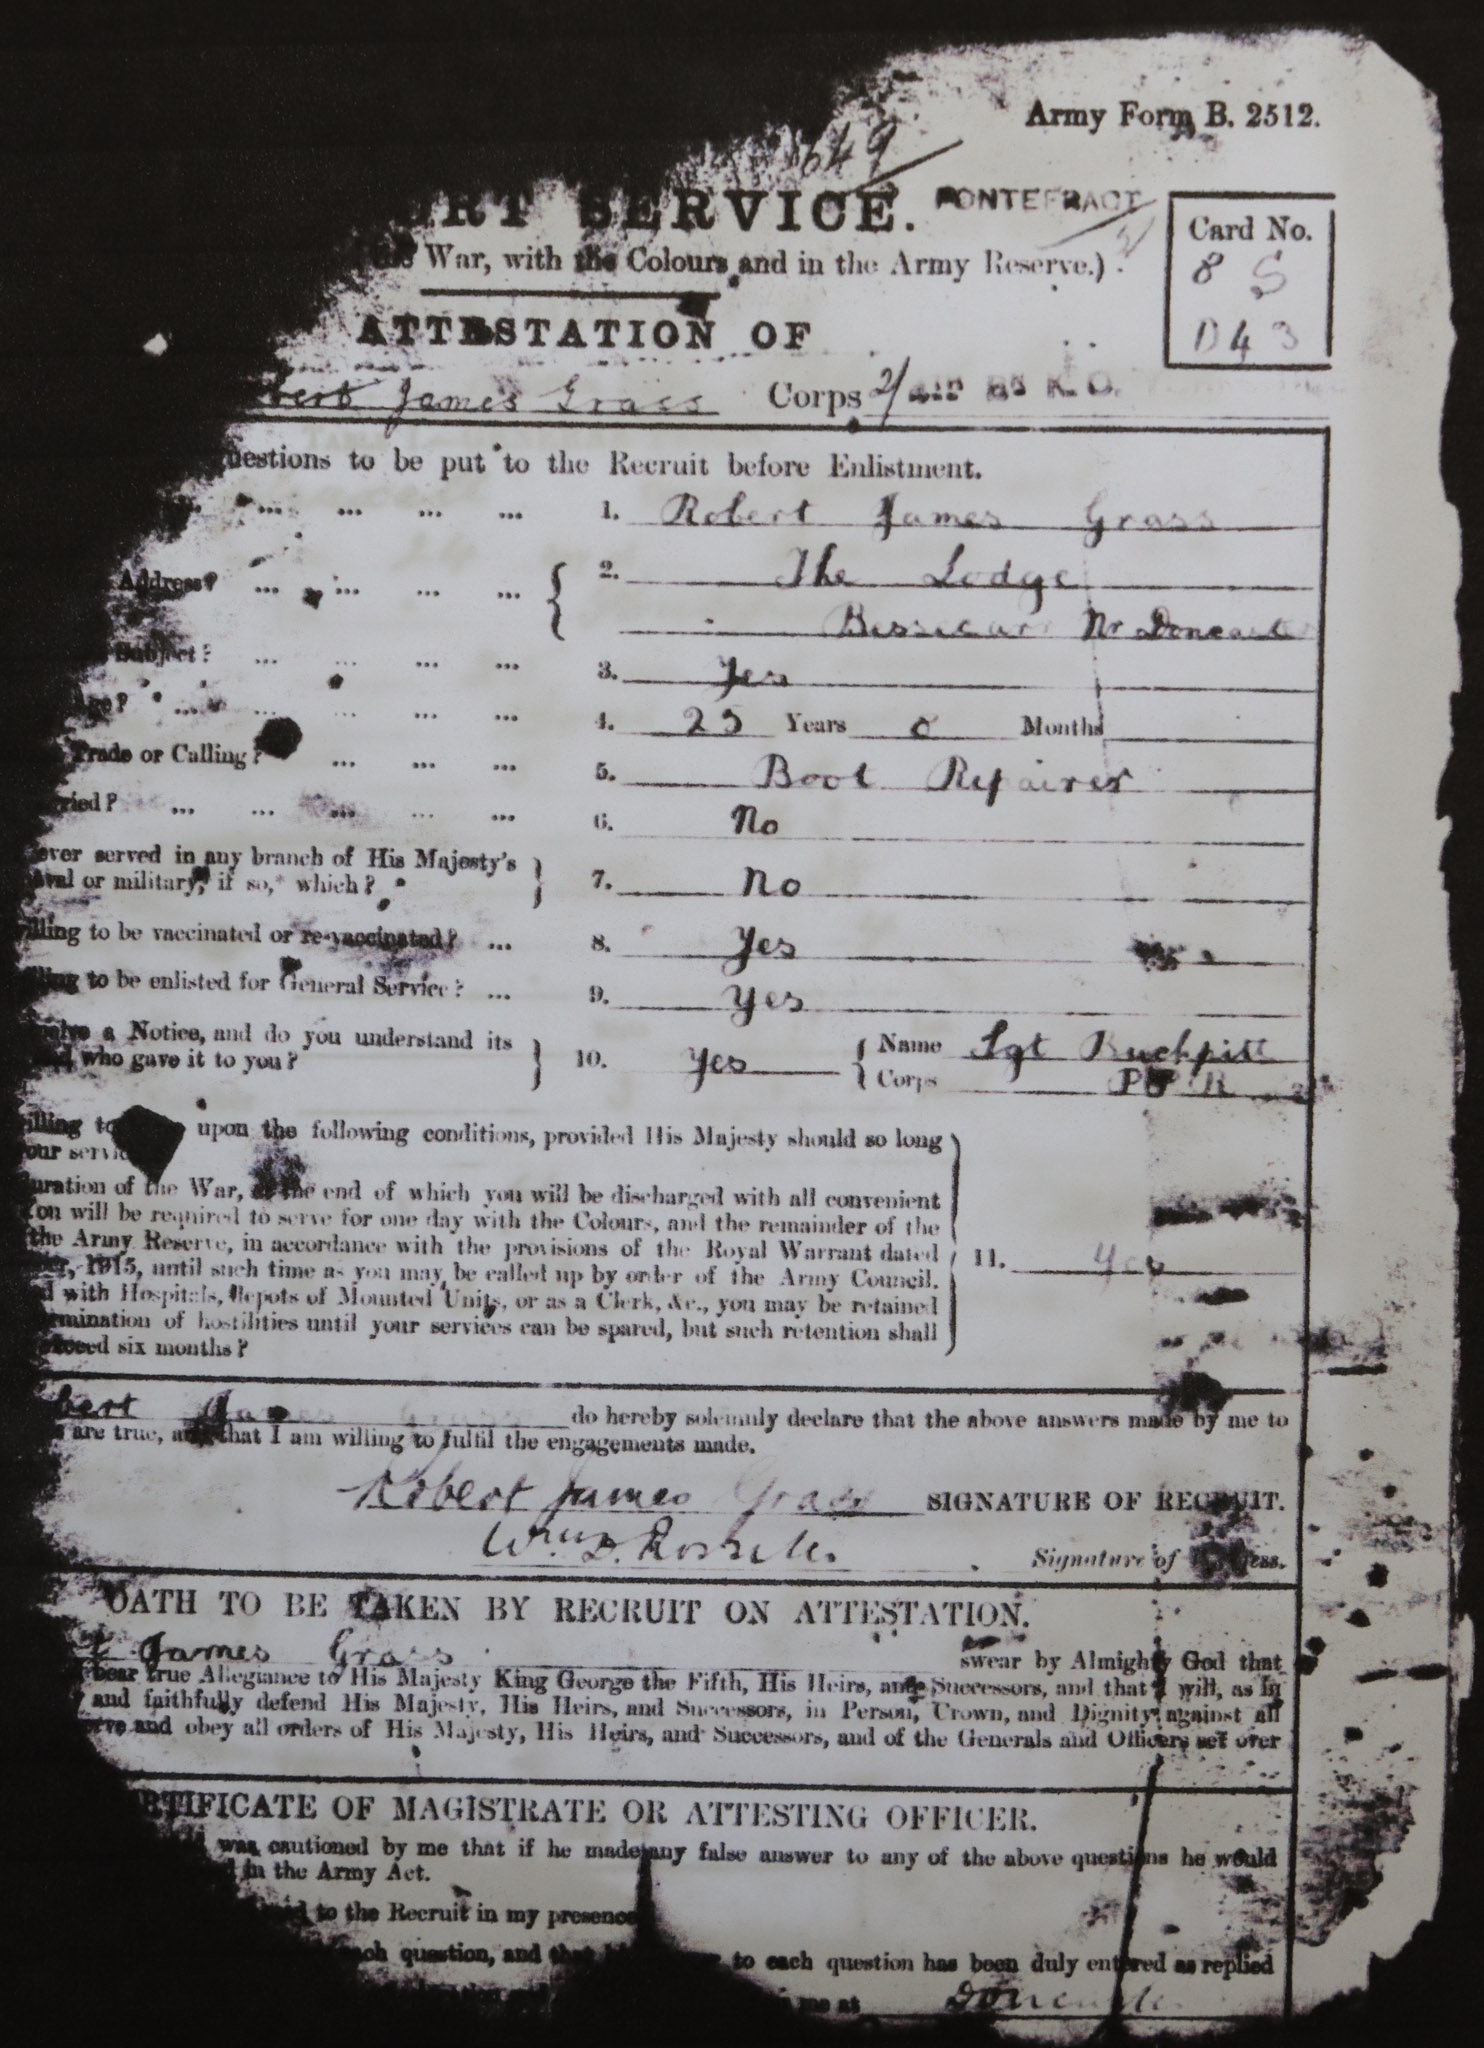 Army Form B. 2512.
649
SERVICE.
PONTEFRACT
War, with the Colours and in the Army Reserve.)
Card No.
8 S
D43
ATTESTATION OF
James Grass Corps 2/ K.O.
uestions to be put to the Recruit before Enlistment.
... ... ... ... 1. Robert James Grass
Address? ... ... ... ... 2. The Lodge
Nr Doncaster
Subject? ... ... ... ... 3. Yes
Age? ... ... ... ... ... 4. 25 Years 0 Months
Trade or Calling? ... ... ... 5. Boot Repairer
ried? ... ... ... ... ... 6. No
ever served in any branch of His Majesty's
val or military, if so,* which? 7. No
illing to be vaccinated or re-vaccinated? ... 8. Yes
ling to be enlisted for General Service? ... 9. Yes
eive a Notice, and do you understand its
and who gave it to you? 10. Yes { Name Sgt
Corps
illing to upon the following conditions, provided His Majesty should so long
our servic
uration of the War, at the end of which you will be discharged with all convenient
You will be required to serve for one day with the Colours, and the remainder of the
the Army Reserve, in accordance with the provisions of the Royal Warrant dated
ber, 1915, until such time as you may be called up by order of the Army Council.
d with Hospitals, depots of Mounted Units, or as a Clerk, &c., you may be retained
ermination of hostilities until your services can be spared, but such retention shall
exceed six months?
11. Yes
bert James Grass do hereby solemnly declare that the above answers made by me to
are true, and that I am willing to fulfil the engagements made.
Robert James Grass SIGNATURE OF RECRUIT.
Signature of Witness.
OATH TO BE TAKEN BY RECRUIT ON ATTESTATION.
t James Grass swear by Almighty God that
bear true Allegiance to His Majesty King George the Fifth, His Heirs, and Successors, and that I will, as in
and faithfully defend His Majesty, His Heirs, and Successors, in Person, Crown, and Dignity against all
erve and obey all orders of His Majesty, His Heirs, and Successors, and of the Generals and Officers set over
RTIFICATE OF MAGISTRATE OR ATTESTING OFFICER.
was cautioned by me that if he made any false answer to any of the above questions he would
d in the Army Act.
to the Recruit in my presence
ach question, and that to each question has been duly entered as replied
me at Doncaster